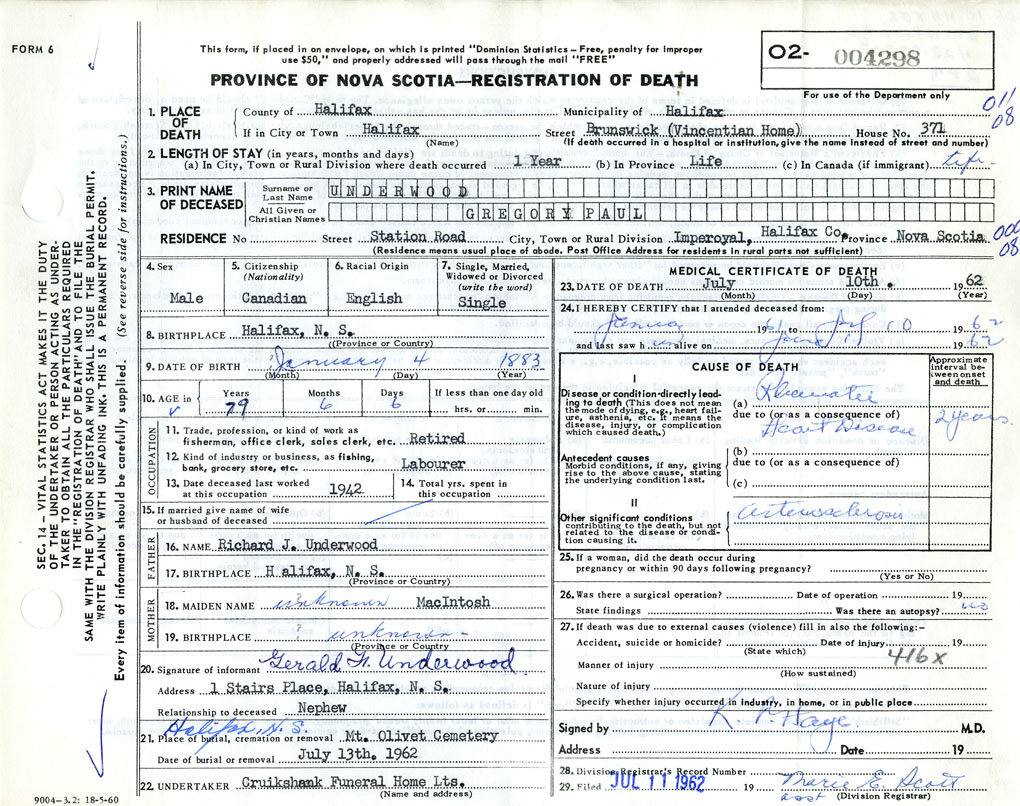 FORM 6
This form, if placed in an envelope, on which is printed "Dominion Statistics – Free, penalty for improper
use $50," and properly addressed will pass through the mail "FREE"
PROVINCE OF NOVA SCOTIA—REGISTRATION OF DEATH
O2- 004298
For use of the Department only
011
08
1. PLACE OF DEATH
County of Halifax Municipality of Halifax
If in City or Town Halifax Street Brunswick (Vincentian Home) House No. 371
(Name) (If death occurred in a hospital or institution, give the name instead of street and number)
2. LENGTH OF STAY (in years, months and days)
(a) In City, Town or Rural Division where death occurred 1 Year (b) In Province Life (c) In Canada (if immigrant) Life
3. PRINT NAME OF DECEASED
Surname or Last Name UNDERWOOD
All Given or Christian Names GREGORY PAUL
RESIDENCE No Street Station Road City, Town or Rural Division Imperoyal, Halifax Co. Province Nova Scotia
000
08
(Residence means usual place of abode. Post Office Address for residents in rural parts not sufficient)
4. Sex Male
5. Citizenship (Nationality) Canadian
6. Racial Origin English
7. Single, Married, Widowed or Divorced (write the word) Single
8. BIRTHPLACE Halifax, N. S.
(Province or Country)
9. DATE OF BIRTH January 4 1883
(Month) (Day) (Year)
10. AGE in Years 79 Months 6 Days 6 If less than one day old hrs. or min.
OCCUPATION
11. Trade, profession, or kind of work as
fisherman, office clerk, sales clerk, etc. Retired
12. Kind of industry or business, as fishing,
bank, grocery store, etc. Labourer
13. Date deceased last worked at this occupation 1942
14. Total yrs. spent in this occupation
15. If married give name of wife
or husband of deceased
FATHER
16. NAME Richard J. Underwood
17. BIRTHPLACE H alifax, N. S.
(Province or Country)
MOTHER
18. MAIDEN NAME unknown MacIntosh
19. BIRTHPLACE ? unknown -
(Province or Country)
20. Signature of informant Gerald F. Underwood
Address 1 Stairs Place, Halifax, N. S.
Relationship to deceased Nephew
Halifax, N. S.
21. Place of burial, cremation or removal Mt. Olivet Cemetery
Date of burial or removal July 13th. 1962
22. UNDERTAKER Cruikshank Funeral Home Lts.
(Name and address)
MEDICAL CERTIFICATE OF DEATH
23. DATE OF DEATH July 10th. 1962
(Month) (Day) (Year)
24. I HEREBY CERTIFY that I attended deceased from:
1961 to July 10 1962
and last saw h im alive on 1962
CAUSE OF DEATH
Approximate interval between onset and death
I
Disease or condition directly leading to death (This does not mean the mode of dying, e.g., heart failure, asthenia, etc. It means the disease, injury, or complication which caused death.)
(a) Rheumatic
due to (or as a consequence of)
Heart Disease 2 years.
Antecedent causes
Morbid conditions, if any, giving rise to the above cause, stating the underlying condition last.
(b)
due to (or as a consequence of)
(c)
II
Other significant conditions
contributing to the death, but not related to the disease or condition causing it.
arteriosclerosis
25. If a woman, did the death occur during
pregnancy or within 90 days following pregnancy?
(Yes or No)
26. Was there a surgical operation? Date of operation 19
State findings Was there an autopsy? no
27. If death was due to external causes (violence) fill in also the following:–
Accident, suicide or homicide? Date of injury 19
(State which)
416x
Manner of injury
(How sustained)
Nature of injury
Specify whether injury occurred in industry, in home, or in public place
Signed by M.D.
Address Date 19
28. Division Registrar's Record Number
29. Filed JUL 11 1962 19 Marie E. Scott
asst (Division Registrar)
SEC. 14 – VITAL STATISTICS ACT MAKES IT THE DUTY
OF THE UNDERTAKER OR PERSON ACTING AS UNDER-
TAKER TO OBTAIN ALL THE PARTICULARS REQUIRED
IN THE "REGISTRATION OF DEATH" AND TO FILE THE
SAME WITH THE DIVISION REGISTRAR WHO SHALL ISSUE THE BURIAL PERMIT.
WRITE PLAINLY WITH UNFADING INK. THIS IS A PERMANENT RECORD.
Every item of information should be carefully supplied. (See reverse side for instructions.)
9004-3.2: 18-5-60